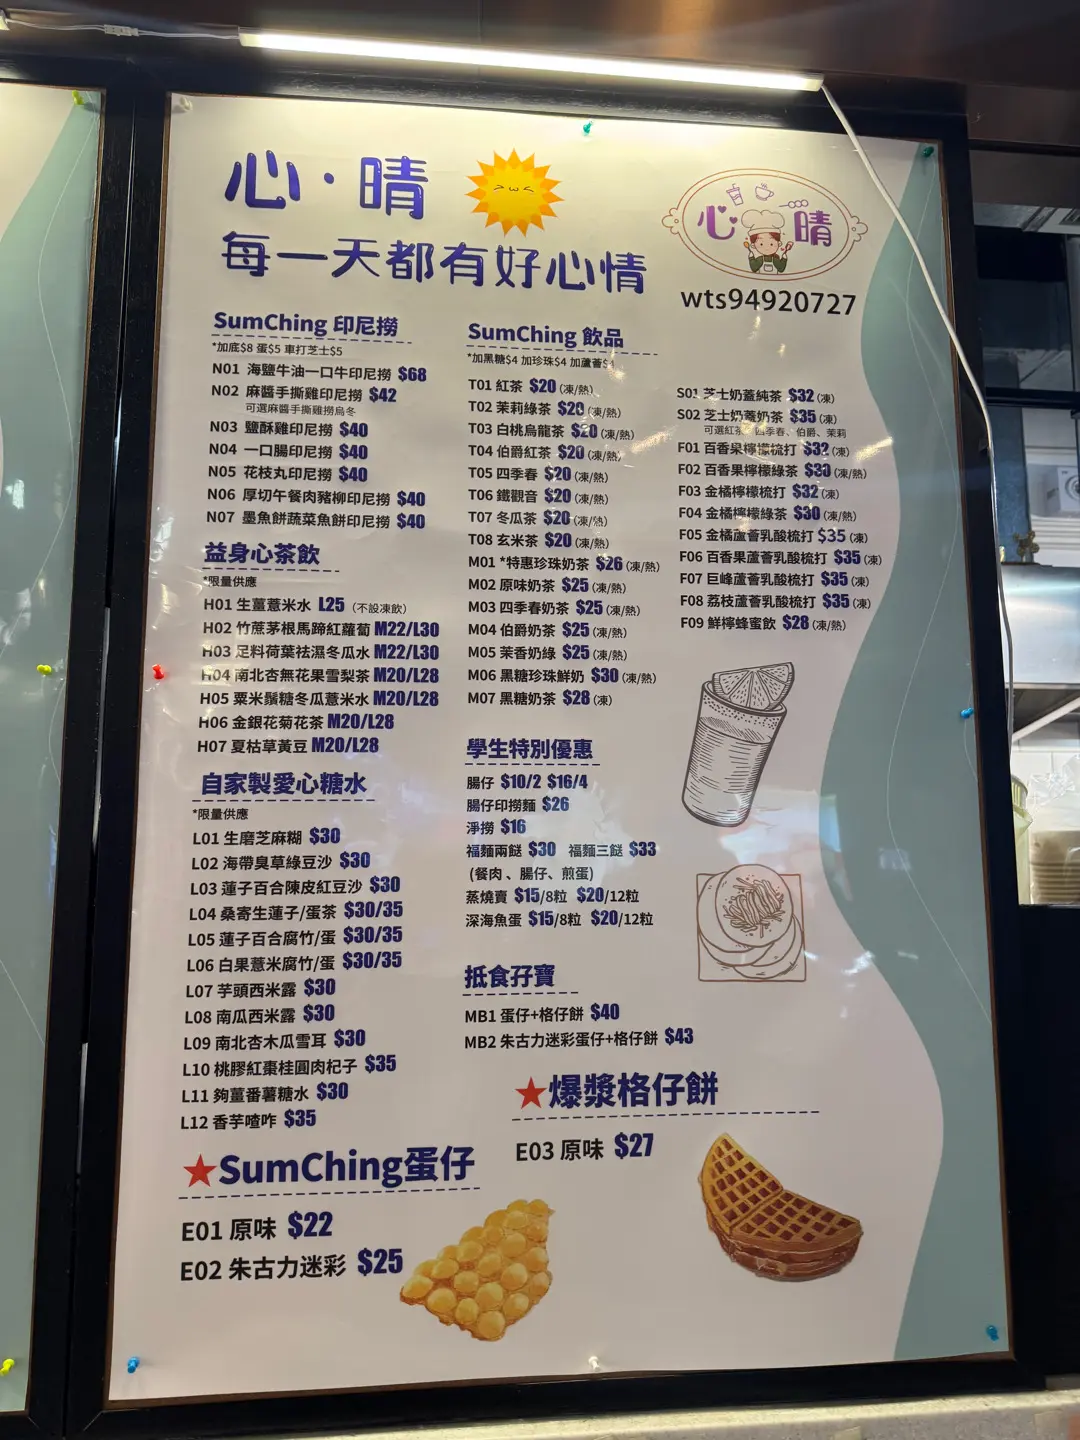 心·晴
每一天都有好心情
心 晴
wts94920727
SumChing 印尼撈
*加底$8 蛋$5 車打芝士$5
N01 海鹽牛油一口牛印尼撈 $68
N02 麻醬手撕雞印尼撈 $42
可選麻醬手撕雞撈烏冬
N03 鹽酥雞印尼撈 $40
N04 一口腸印尼撈 $40
N05 花枝丸印尼撈 $40
N06 厚切午餐肉豬柳印尼撈 $40
N07 墨魚餅蔬菜魚餅印尼撈 $40
益身心茶飲
*限量供應
H01 生薑薏米水 L25 (不設凍飲)
H02 竹蔗茅根馬蹄紅蘿蔔 M22/L30
H03 足料荷葉祛濕冬瓜水 M22/L30
H04 南北杏無花果雪梨茶 M20/L28
H05 粟米鬚糖冬瓜薏米水 M20/L28
H06 金銀花菊花茶 M20/L28
H07 夏枯草黃豆 M20/L28
自家製愛心糖水
*限量供應
L01 生磨芝麻糊 $30
L02 海帶臭草綠豆沙 $30
L03 蓮子百合陳皮紅豆沙 $30
L04 桑寄生蓮子/蛋茶 $30/35
L05 蓮子百合腐竹/蛋 $30/35
L06 白果薏米腐竹/蛋 $30/35
L07 芋頭西米露 $30
L08 南瓜西米露 $30
L09 南北杏木瓜雪耳 $30
L10 桃膠紅棗桂圓肉杞子 $35
L11 夠薑番薯糖水 $30
L12 香芋喳咋 $35
★SumChing蛋仔
E01 原味 $22
E02 朱古力迷彩 $25
SumChing 飲品
*加黑糖$4 加珍珠$4 加蘆薈$4
T01 紅茶 $20 (凍/熱)
T02 茉莉綠茶 $20 (凍/熱)
T03 白桃烏龍茶 $20 (凍/熱)
T04 伯爵紅茶 $20 (凍/熱)
T05 四季春 $20 (凍/熱)
T06 鐵觀音 $20 (凍/熱)
T07 冬瓜茶 $20 (凍/熱)
T08 玄米茶 $20 (凍/熱)
M01 *特惠珍珠奶茶 $26 (凍/熱)
M02 原味奶茶 $25 (凍/熱)
M03 四季春奶茶 $25 (凍/熱)
M04 伯爵奶茶 $25 (凍/熱)
M05 茉香奶綠 $25 (凍/熱)
M06 黑糖珍珠鮮奶 $30 (凍/熱)
M07 黑糖奶茶 $28 (凍)
S01 芝士奶蓋純茶 $32 (凍)
S02 芝士奶蓋奶茶 $35 (凍)
可選紅茶、四季春、伯爵、茉莉
F01 百香果檸檬梳打 $32 (凍)
F02 百香果檸檬綠茶 $30 (凍/熱)
F03 金橘檸檬梳打 $32 (凍)
F04 金橘檸檬綠茶 $30 (凍/熱)
F05 金橘蘆薈乳酸梳打 $35 (凍)
F06 百香果蘆薈乳酸梳打 $35 (凍)
F07 巨峰蘆薈乳酸梳打 $35 (凍)
F08 荔枝蘆薈乳酸梳打 $35 (凍)
F09 鮮檸蜂蜜飲 $28 (凍/熱)
學生特別優惠
腸仔 $10/2 $16/4
腸仔印撈麵 $26
淨撈 $16
福麵兩餸 $30 福麵三餸 $33
(餐肉、腸仔、煎蛋)
蒸燒賣 $15/8粒 $20/12粒
深海魚蛋 $15/8粒 $20/12粒
抵食孖寶
MB1 蛋仔+格仔餅 $40
MB2 朱古力迷彩蛋仔+格仔餅 $43
★爆漿格仔餅
E03 原味 $27